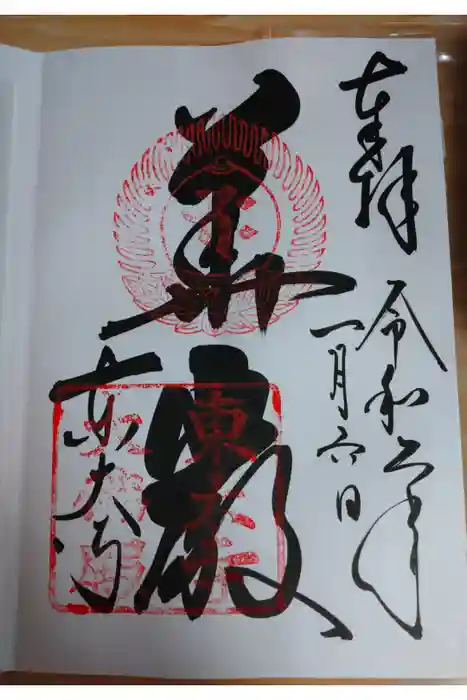 奉拝
令和二年
一月六日
華厳
東大寺